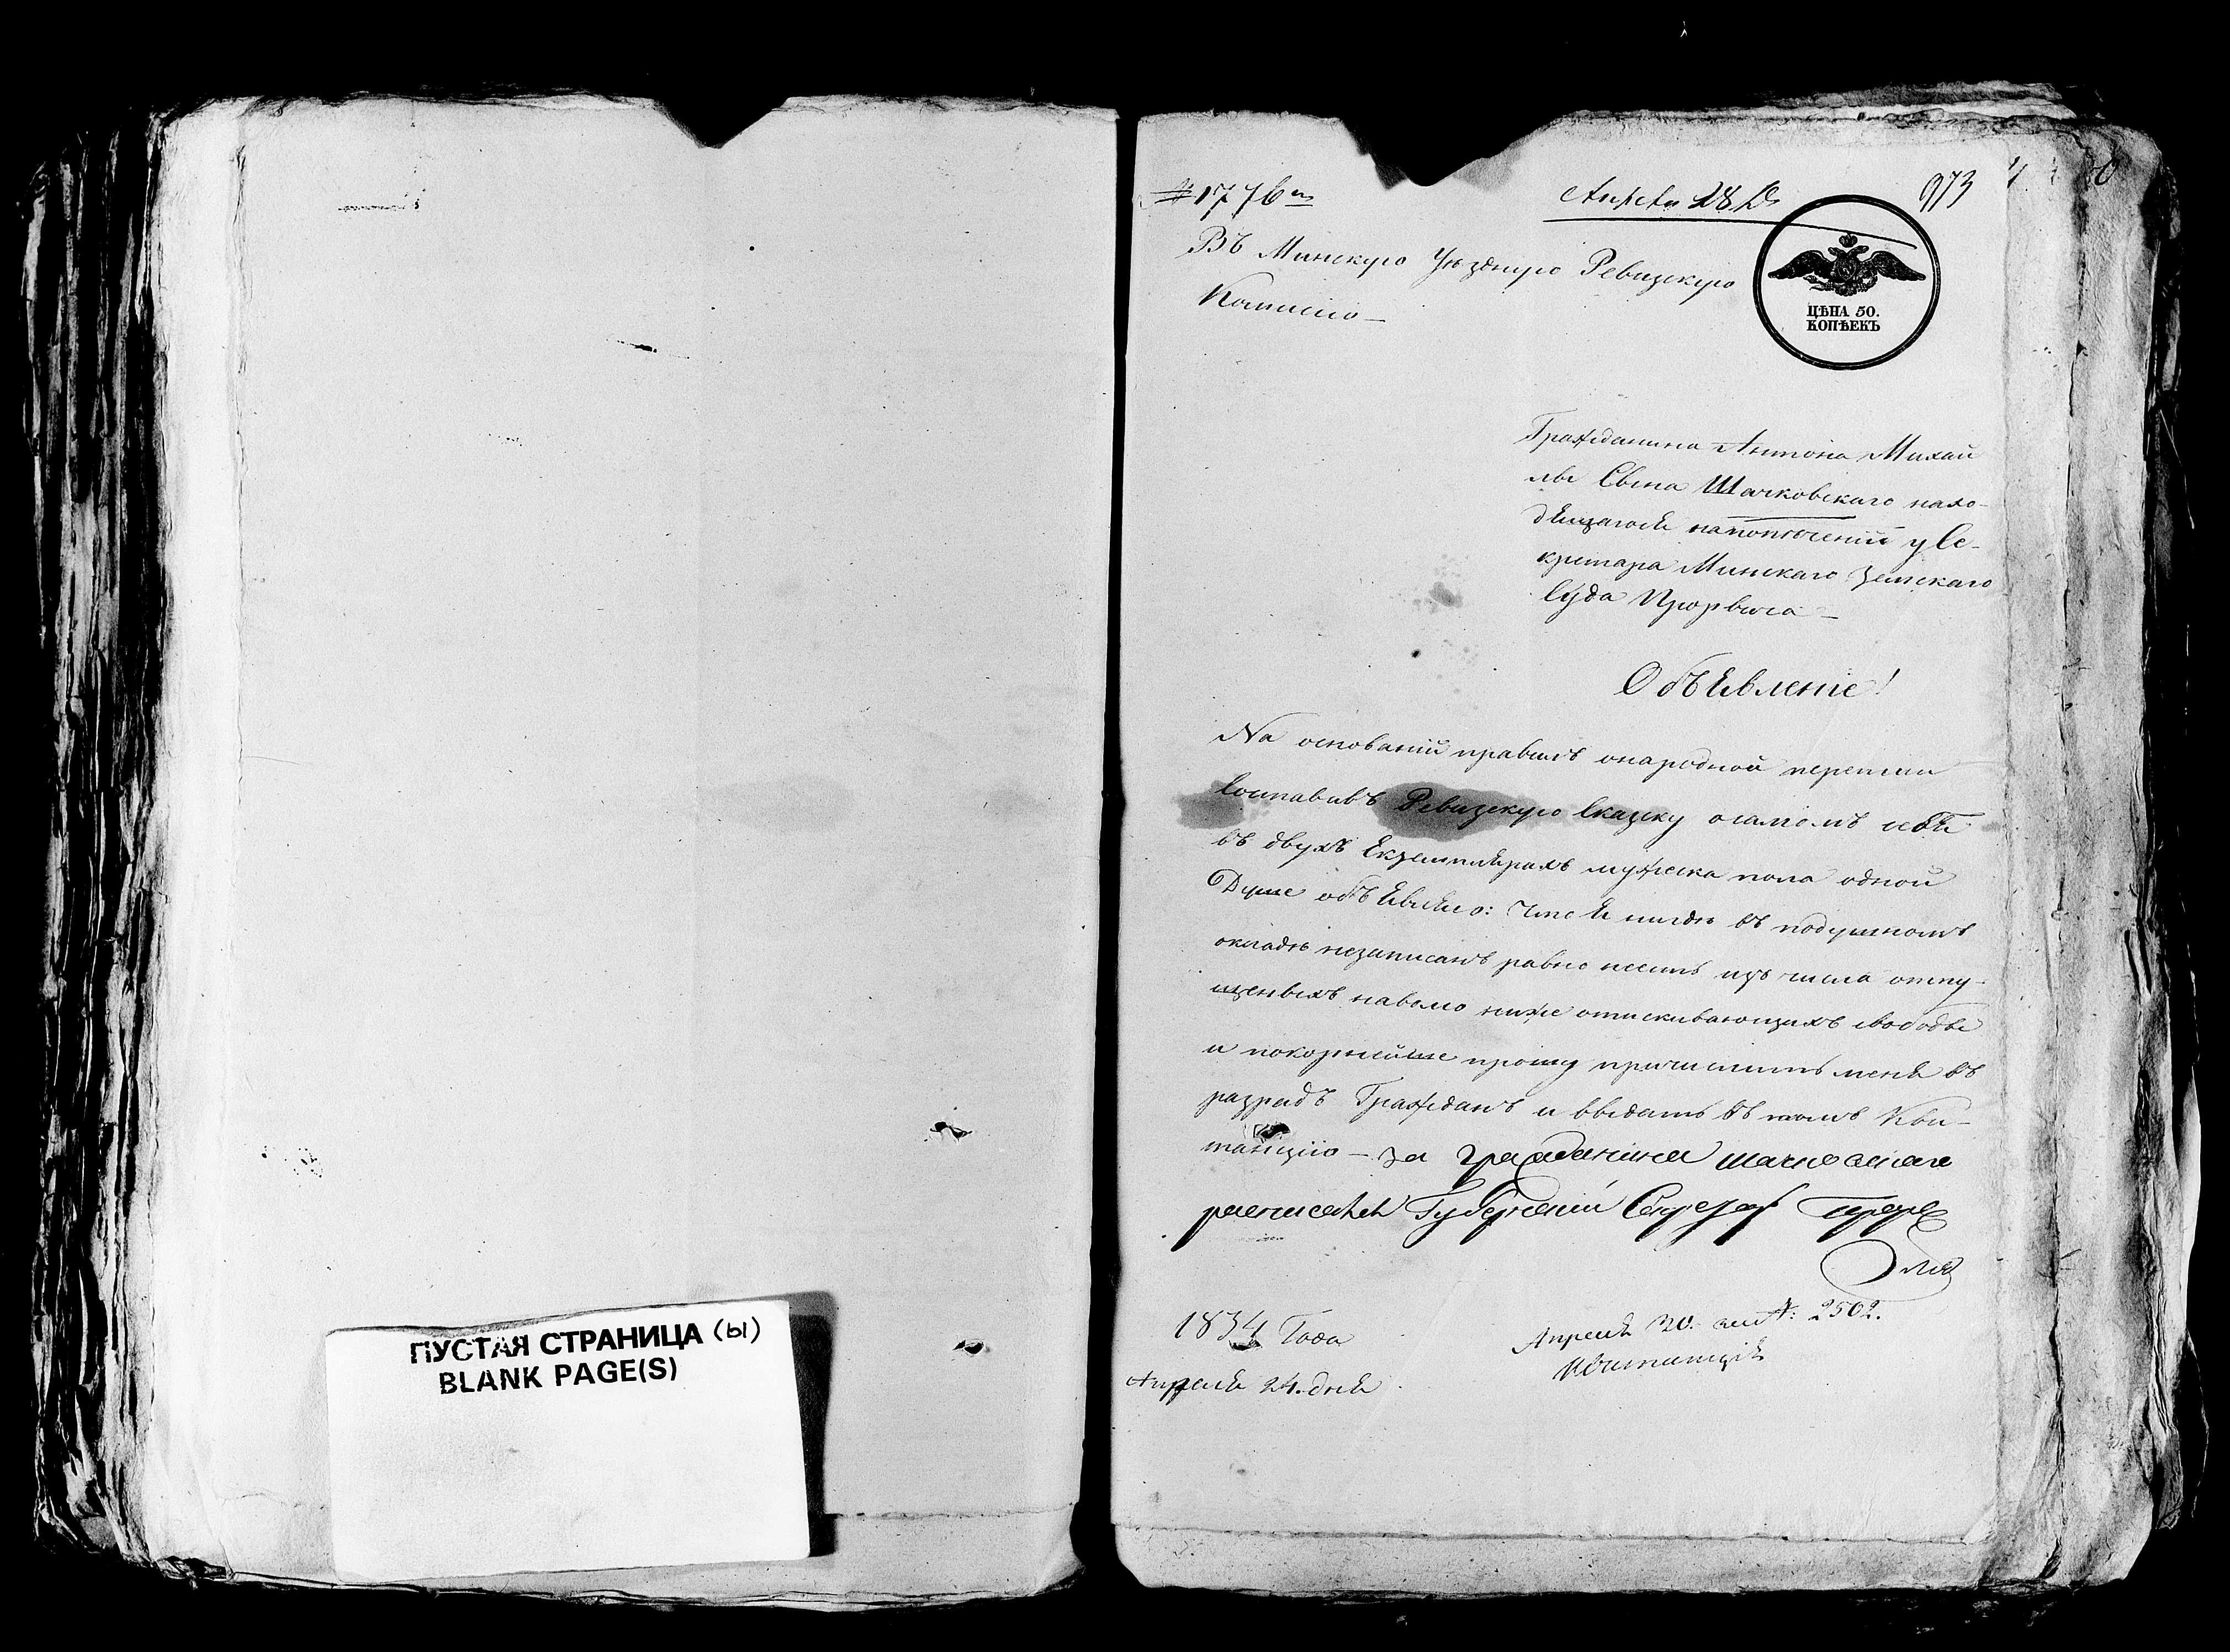 ПУСТАЯ СТРАНИЦА (ы)
BLANK PAGE(S)
1776
Апреля 28 Д.
973
Въ Минскую Уѣздную Ревизскую
Комисію
ЦѢНА 50.
КОПѢЕКЪ
Гражданина Антона Михай
лы Сына Шачковскаго нахо-
дящагося у Се-
кретара Минскаго Земскаго
Суда
Объявленіе!
На основаніи правилъ онародной переписи
Составивъ Ревизскую Сказку осамомъ себѣ
въ двухъ Екземплярахъ мужеска пола одной
Душе объявляю: что я нигдѣ въ подушномъ
окладѣ незаписанъ равно несмь изъ числа отпу-
щеныхъ наволю ниже отискивающихъ свободы
и покорнейше прошу причислить меня въ
разрядъ Гражданъ и выдать въ томъ Кви-
танцію – За гражданина Шачковскаго
росписался Губернскій Секретарь
1834 Года
Апреля 24. дня
Апреля 30. 2502.
Квитанція